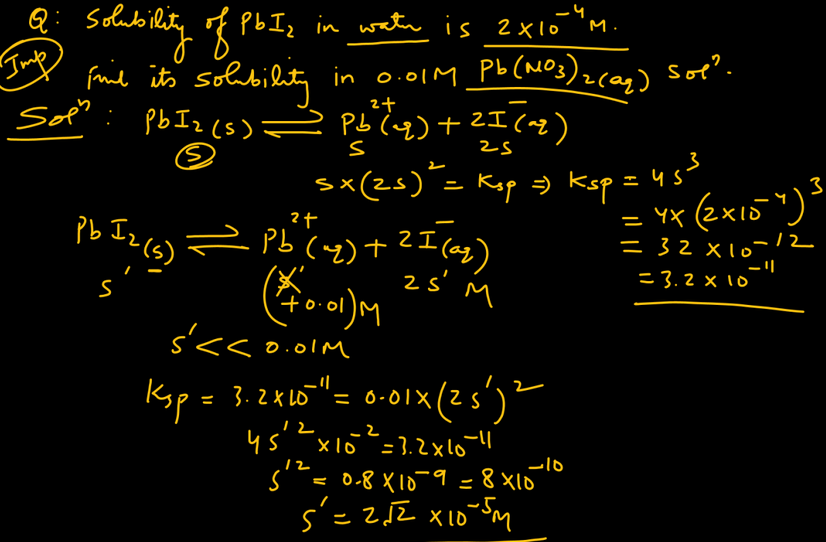 Q: Solubility of PbI₂ in water is 2×10⁻⁴ M.
Imp find its solubility in 0.01M Pb(NO₃)₂(aq) solⁿ.
Solⁿ: PbI₂(s) ⇌ Pb²⁺(aq) + 2I⁻(aq)
s s 2s
s×(2s)² = Ksp ⇒ Ksp = 4s³
= 4×(2×10⁻⁴)³
= 32×10⁻¹²
= 3.2×10⁻¹¹
PbI₂(s) ⇌ Pb²⁺(aq) + 2I⁻(aq)
s' (s' + 0.01)M 2s' M
s' << 0.01M
Ksp = 3.2×10⁻¹¹ = 0.01×(2s')²
4s'²×10⁻² = 3.2×10⁻¹¹
s'² = 0.8×10⁻⁹ = 8×10⁻¹⁰
s' = 2√2 ×10⁻⁵M